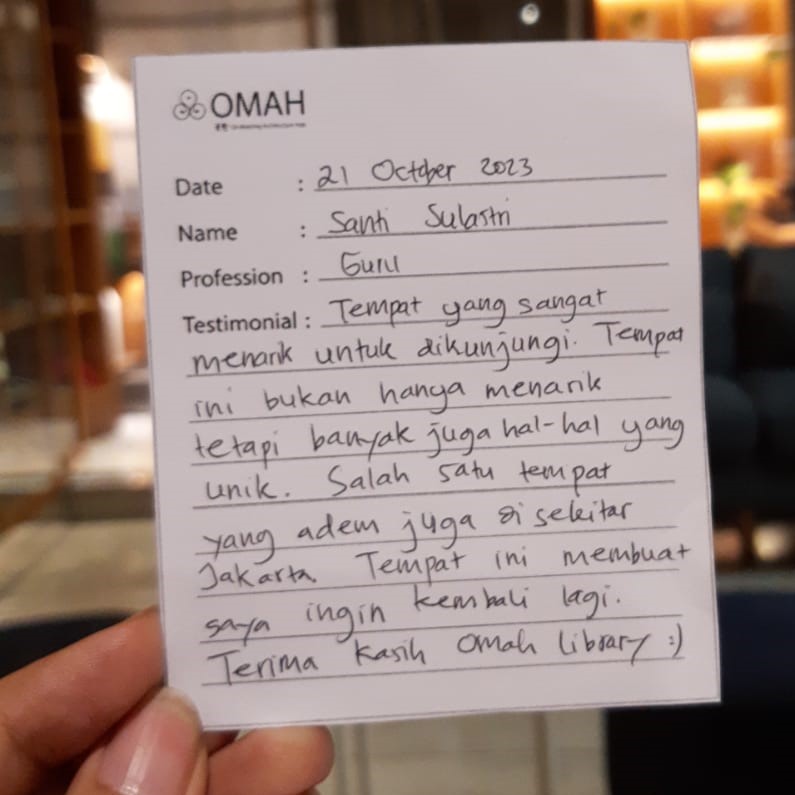 OMAH
Date : 21 October 2023
Name : Santi Sulastri
Profession : Guru
Testimonial : Tempat yang sangat
menarik untuk dikunjungi. Tempat
ini bukan hanya menarik
tetapi banyak juga hal-hal yang
unik. Salah satu tempat
yang adem juga di sekitar
Jakarta. Tempat ini membuat
saya ingin kembali lagi.
Terima kasih Omah Library :)